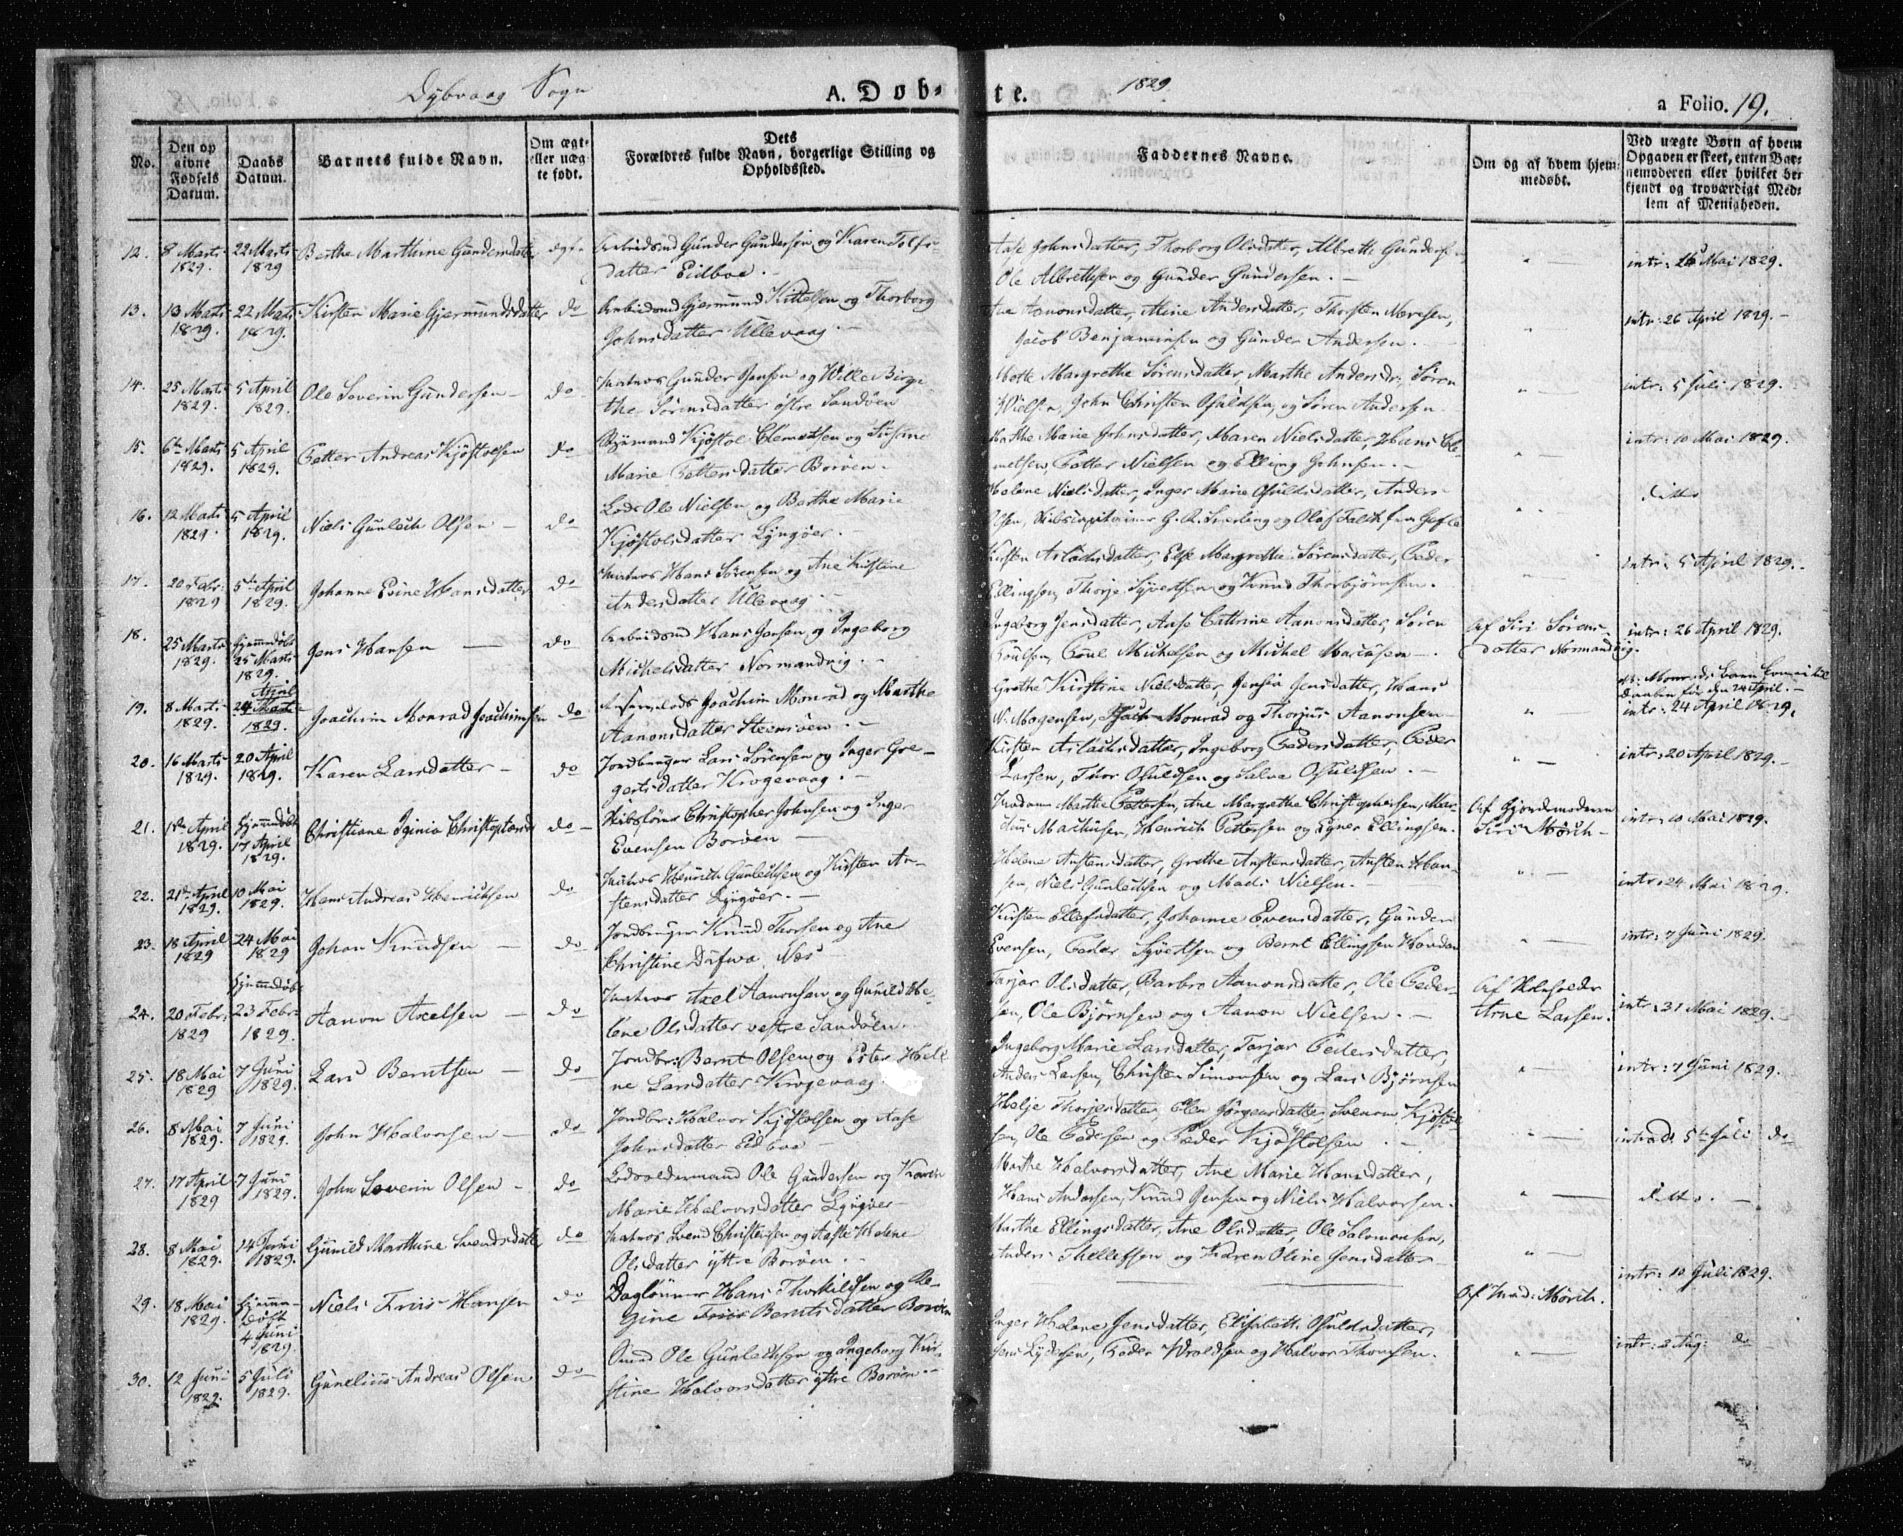 Dybvaag Sogn
A. Døb-
te.
1829
a Folio. 19.
No.
Den op
givne
Fødsels
Datum.
Daabs
Datum.
Barnets fulde Navn.
Om ægt-
eller uæg-
te født.
Dets
Forældres fulde Navn, borgerlige Stilling og
Opholdssted.
Faddernes Navne.
Om og af hvem hjem-
medøbt.
Ved uægte Børn af hvem
Opgaven er skeet, enten Bar-
nemoderen eller hvilket be-
kjendt og troværdigt Med-
lem af Menigheden.
12. 8 Marts 1829. 22 Marts 1829 Berthe Marthine Gundersdatter ægte Arbeidsmd Gunder Gundersen og Karen Tolfs-
datter Eidboe. Aase Johnsdatter, Thorborg Olsdatter, Albrethe Gundersen
Ole Albrethsen og Gunder Gundersen. intr: 26 Mai 1829.
13. 13 Marts 1829. 22 Marts 1829. Kirsten Marie Gjermundsdatter do Arbeidsmd Gjermund Kittelsen og Thorborg
Johnsdatter Ullevaag. Ane Aanonsdatter, Aline Andersdatter, Thorsten
Jacob Benjaminsen og Gunder Andersen. intr: 26 April 1829.
14. 25 Marts 1829. 5 April 1829. Ole Severin Gundersen do Matros Gunder Jensen og Wille Birgi-
the Sørensdatter østre Sandøen Mette Margrethe Sørensdatter, Marthe Andersdr, Søren
Nielsen, John Christen Osuldsen, og Søren Andersen. intr: 5 Juli 1829.
15. 6te Marts 1829. 5 April 1829. Petter Andreas Kjøstolsen do Kjøstol Clemetsen og Susanne
Marie Pettersdatter Borøen. Marthe Marie Johnsdatter, Maren Nielsdatter, Hans Cle-
metsen, Petter Nielsen og Elling Johnsen. intr: 10 Mai 1829.
16. 12 Marts 1829. 5 April 1829. Niels Gunleik Olsen do Lods Ole Nielsen og Berthe Marie
Kjøstolsdatter Lyngøer. Helene Nielsdatter, Inger Marie Osuldsdatter, Anders
Olsen, Skibscapitainer G. R. og Olof Falck fra Gefle ditto
17. 20 Febr. 1829 5te April 1829. Johanne Evine Hansdatter do Matros Hans Sørensen og Ane Kirstine
Andersdatter Ullevaag. Kirsten Aslaksdatter, Else Margrethe Sørensdatter, Peder
Ellingsen, Thorje Syvertsen og Knud Thorbjørnsen. intr: 5 April 1829.
18. 25 Marts 1829. Hjemmedøbt 25 Marts 1829. Jens Hansen do Arbeidsmd Hans Jensen og Ingeborg
Michelsdatter Normandvig. Ingeborg Jensdatter, Aase Cathrine Aanonsdatter, Søren
Poulsen, Poul Michelsen og Michel Af Siri Sørens-
datter Normandvig. intr: 26 April 1829.
19. 8 Marts 1829. 24 April 1829. Joachim Monrad Joachimsen do Joachim Monrad og Marthe
Aanonsdatter Steensøen Grethe Kirstine Nielsdatter, Jensia Jensdatter, Hans
N. Mogensen, Monrad og Thorjus Aanonsen Monrads barn kom til
daaben før den 24 April.
intr: 24 April 1829.
20. 16 Marts 1829. 20 April 1829. Karen Larsdatter do Jordbruger Lars Sørensen og Inger Gre-
gersdatter Krogevaag. Kirsten Aslaksdatter, Ingeborg Pedersdatter, Peder
Larsen, Thor Osuldsen og Salve Osuldsen. intr: 20 April 1829.
21. 1ste April 1829. Hjemmedøbt 17 April 1829. Christiane Iginia do Skibsfører Christopher Johnsen og Inger
Evensen Borøen Madame Marthe Pettersen, Ane Margrethe Christophersen, Mar-
cus Marcussen, Henrich Pettersen og Egner Ellingsen. Af Gjordemoderen
Siri Mørch intr: 10 Mai 1829.
22. 21de April 1829. 10 Mai 1829. Hans Andreas Henrichsen do Matros Henrich Gunleksen og Kirsten Au-
stensdatter Lyngøer. Helene Austensdatter, Grethe Austensdatter, Austen Han-
sen, Niels Gunleksen og Mads Nielsen. intr: 24 Mai 1829.
23. 18 April 1829 24 Mai 1829 Johan Knudsen do Jordbruger Knud Thorsen og Ane
Christine Næs Kirsten Ellefsdatter, Johanne Evensdatter, Gunder
Evensen, Peder Syvertsen og Bernt Ellingsen intr: 7 Juni 1829.
24. 20 Febr: 1829 Hjemmedøbt 23 Febr: 1829. Aanon Axelsen do Matros Axel Aanonsen og Gunild He-
lene Olsdatter vestre Sandøen. Tarjar Olsdatter, Barbro Aanonsdatter, Ole Peder-
sen, Ole Bjørnsen og Aanon Nielsen. Af
Arne Larsen. intr: 31 Mai 1829.
25. 18 Mai 1829 7 Juni 1829. Lars Berntsen do Jordbr: Bernt Olsen og Ester Hele-
ne Larsdatter Krogevaag Ingeborg Marie Larsdatter, Tarjar Pedersdatter,
Anders Larsen, Christen Simonsen og Lars Bjørnsen intr: 7 Juni 1829.
26. 8 Mai 1829. 7 Juni 1829. John Halvorsen do Jordbr: Halvor Kjøstolsen og Aase
Johnsdatter Eidboe Helje Thorjersdatter, Elen Jørgensdatter, Kjøstol-
sen, Ole Pedersen og Peder Kjøstolsen. intrd: 5te Juli do
27. 17 April 1829 7 Juni 1829. John Severin Olsen do Lodsoldermand Ole Gundersen og Karen
Marie Halvorsdatter Lyngøer Marthe Halvorsdatter, Ane Marie Hansdatter,
Hans Andersen, Knud Jensen og Niels Halvorsen. ditto.
28. 8 Mai 1829. 14 Juni 1829. Gunild Marthine Svendsdatter do Matros Svend Christensen og Aaste Helene
Olsdatter yttre Borøen. Marthe Ellingsdatter, Ane Olsdatter, Ole Salomonsen,
Anders Thellefsen og Karen Oline Jensdatter
29. 18 Mai 1829. Hjemme-
døbt
4 Juni 1829. Niels Friis Hansen do Daglønner Hans Thorkildsen og Re-
gine Berntsdatter Borøen Af Mad: Mørch. intr: 10 Juli 1829.
30. 12 Juni 1829. 5 Juli 1829. Gunelius Andreas Olsen do Ole Gunleksen og Ingeborg Kir-
stine Halvorsdatter yttre Borøen. Inger Helene Jensdatter, Elisabeth Osuldsdatter,
Jens Lydersen, Peder Wroldsen og Halvor Thomsen. intr: 2 Aug: do